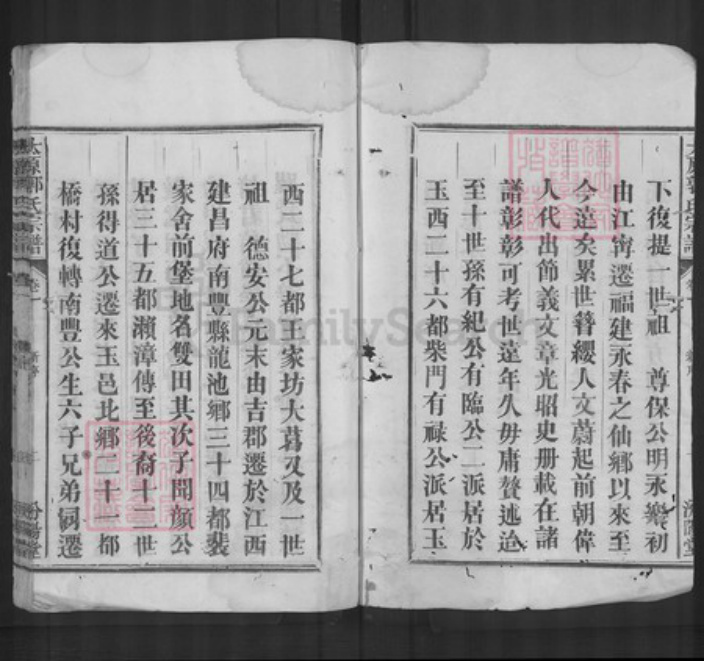 下復提一世祖　尊保公明永樂初
由江甯遷福建永春之仙鄉以來至
今遠矣累世簪纓人文蔚起前朝偉
人代出節義文章光昭史册載在諸
譜彰彰可考世遠年久毋庸贅述迨
至十世孫有紀公有臨公二派居於
玉西二十六都柴門有禄公派居玉
西二十七都王家坊大葛又及一世
祖　德安公元末由吉郡遷於江西
建昌府南豐縣龍池鄉三十四都裴
家舍前堡地名雙田其次子聞顏公
居三十五都瀨漳傳至後裔十二世
孫得道公遷來玉邑北鄉二十一都
橋村復轉南豐公生六子兄弟同遷
太原郭氏宗譜
卷一
新序
二
汾陽堂
FamilySearch